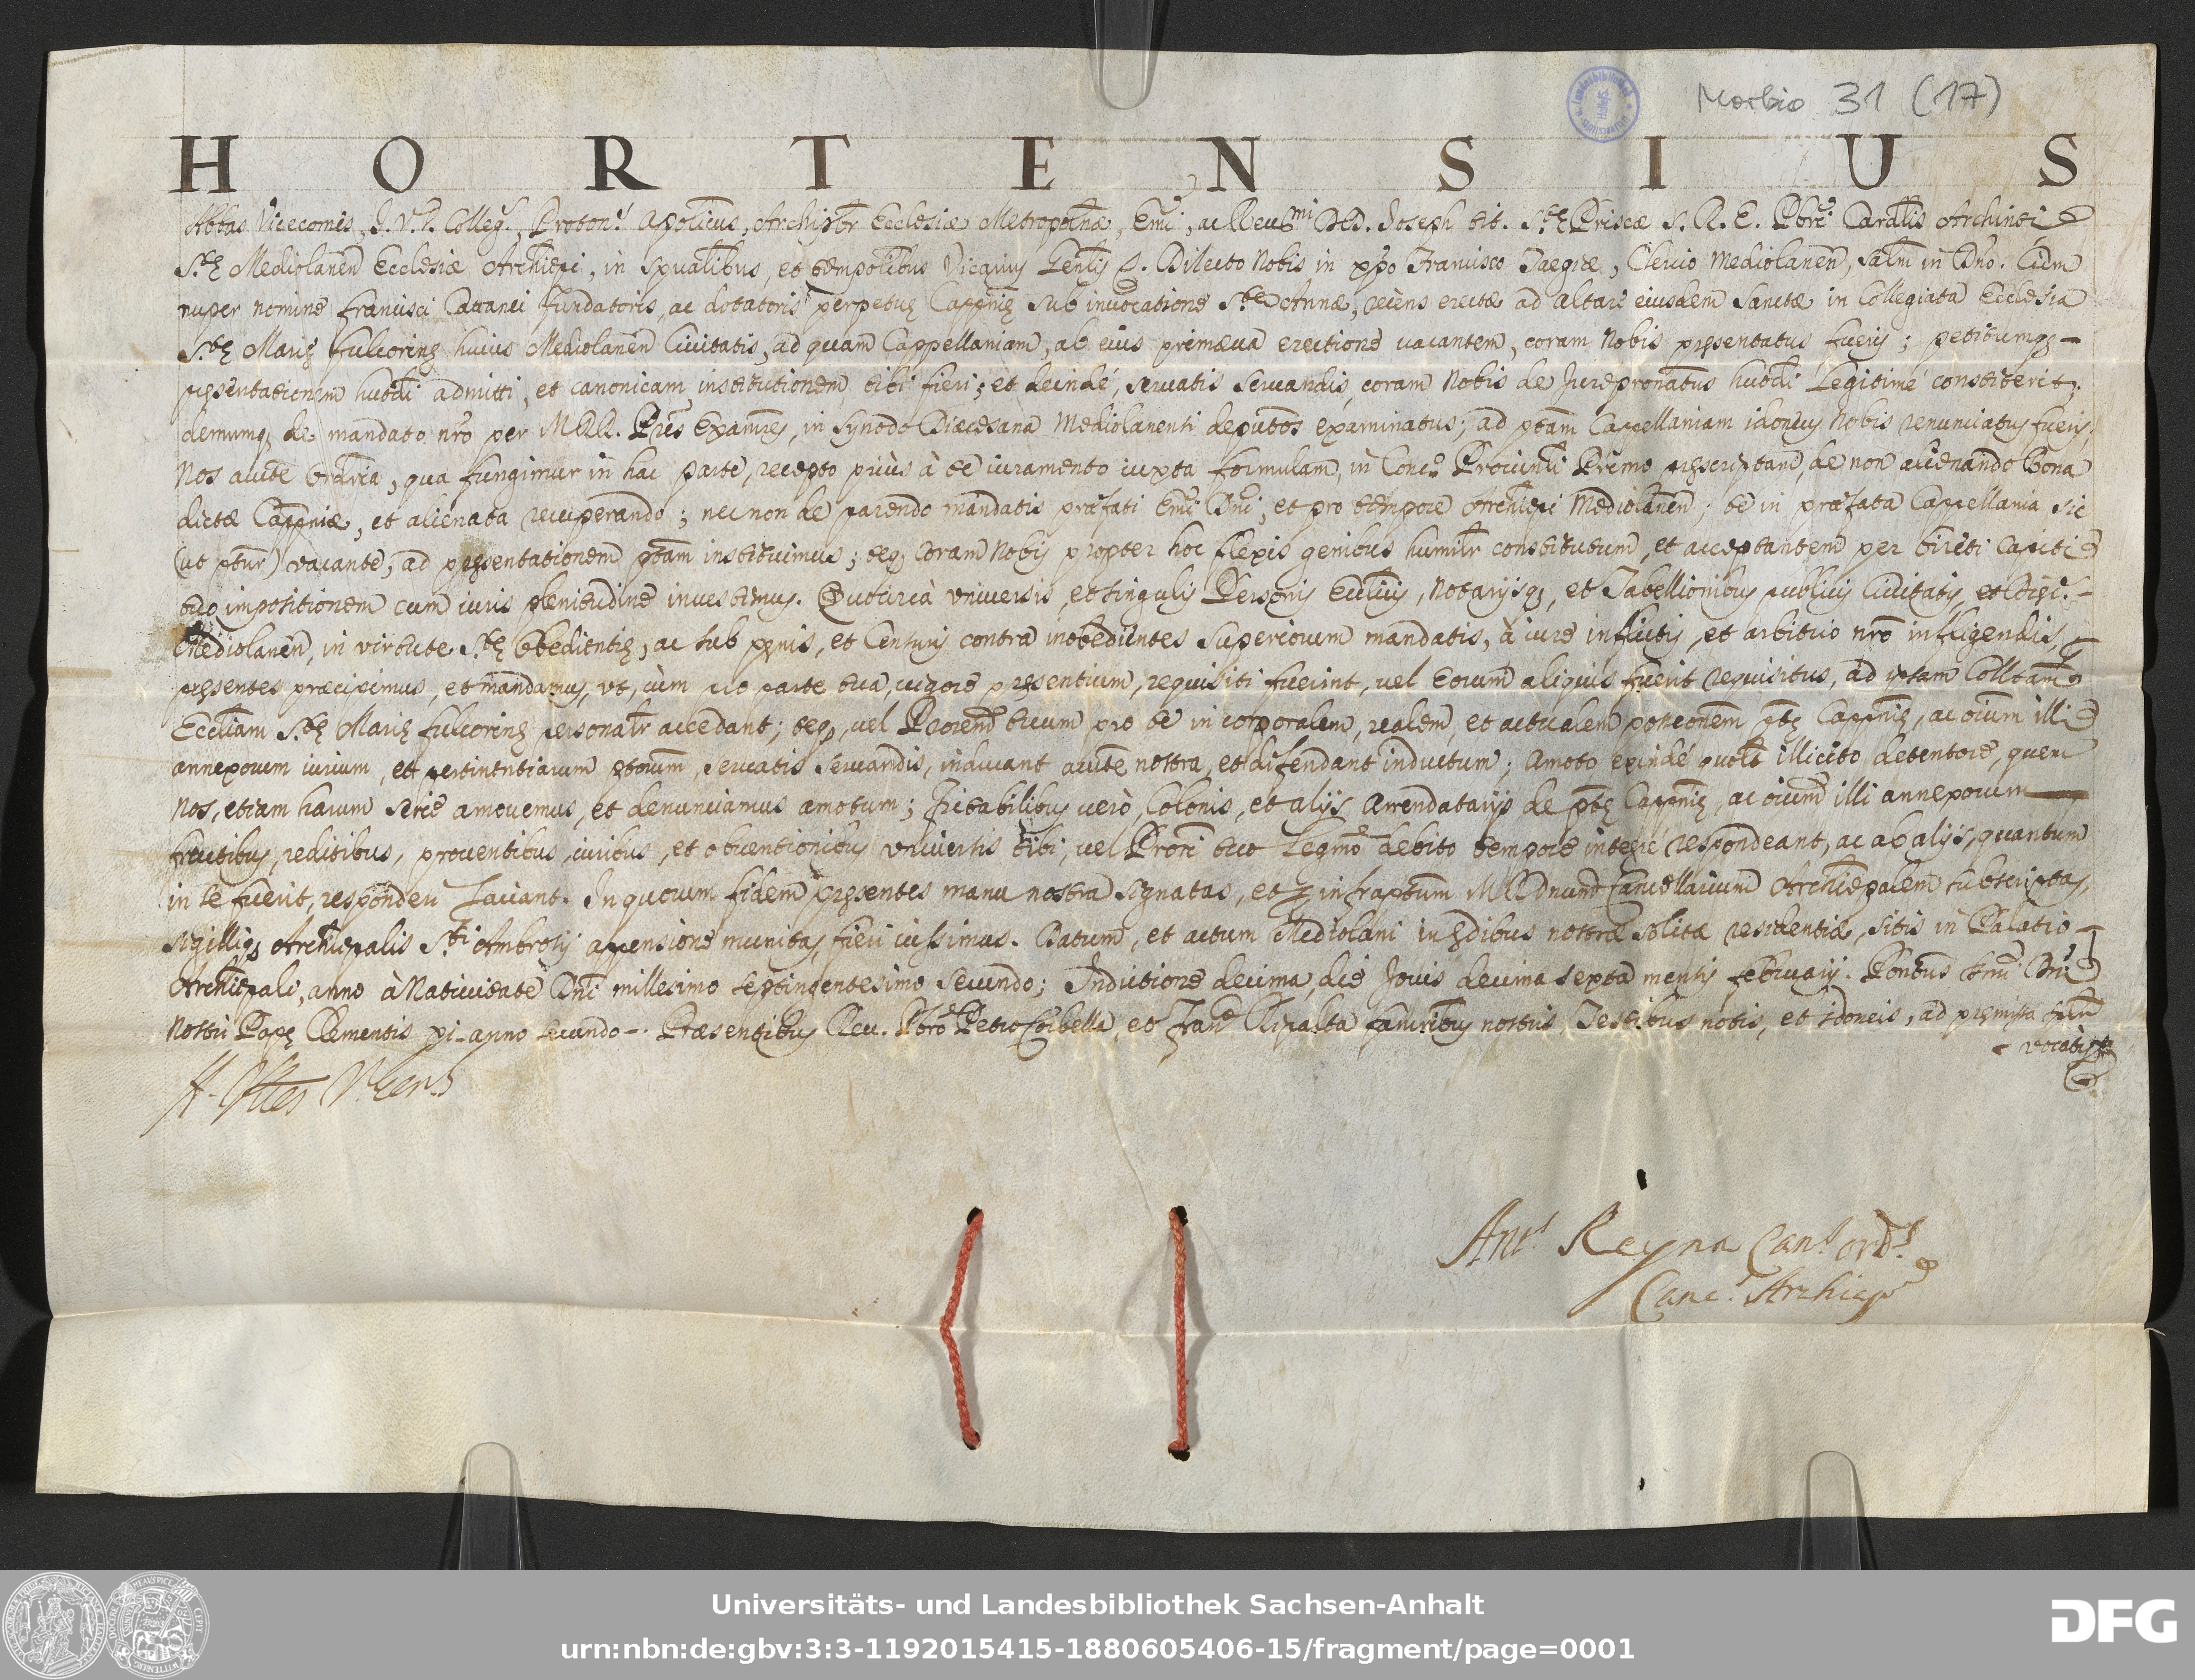 Morbio 31 (17)
HORTENSIUS
Abbas Vicecomes, I.V.D. Colleg.s, Proton.s Apolicus, Archipbr Ecclesiæ Metropolnæ, Emi, ac Reuᵐⁱ DD. Joseph tit. S.tę Priscæ S. R. E. Pbri Cardlis Archinti
S.tę Mediolanen Ecclesiæ Archiepi, in spualibus, et tempolibus Vicarius Genlis &. Dilecto Nobis in xpo Francisco Taegiæ, Clerico Mediolanen, salm in Dno. Cùm
nuper nomine Francisci Cattanei Fundatoris, ac dotatoris perpetuę Cappnię sub invocatione S.tæ Annæ, recens erectæ ad altare eiusdem Sanctæ in Collegiata Ecclesia
S.tę Marię Fulcorinę huius Mediolanen Ciuitatis, ad quam Cappellaniam, ab eius primæua erectione uacantem, coram Nobis pręsentatus fueris; petitumq;
pręsentationem hutdi admitti, et canonicam institutionem tibi fieri; et deindé, seruatis seruandis, coram Nobis de Jurepronatus hutdi legitimé constiterit;
demumq; de mandato nro per MRR. Pres Examres, in synodo Diæcesana Mediolanenti deputos examinatus; ad ptam Cappellaniam idoneus Nobis renunciatus fueris;
Nos aucte ordria, qua fungimur in hac parte, recepto priùs à te iuramento iuxta formulam, in Conc.o Prouinli Primo pręscriptam, de non alienando Bona
dictæ Cappniæ, et alienata recuperando; nec non de parendo mandatis præfati Emi Dni, et pro tempore Archiepi Mediolanen; te in præfata Cappellania sic
(ut ptur) vacante, ad pręsentationem ptam instituimus; teq; coram Nobis propter hoc flexis genibus humilr constitutum, et acceptantem per bireti capiti
tuo impositionem cum iuris plenitudine inuestimus. Quocircà vniuersis, et singulis Personis Ecclicis, Notarijsq;, et Tabellionibus publicis Ciuitatis, et Diæc.s
Mediolanen, in virtute S.tę Obedientię, ac sub pęnis, et Censuris contra inobedientes superiorum mandatis, à iure inflictis, et arbitrio nro infligendis,
pręsentes præcipimus, et mandamus, vt, cùm pro parte tua, uigore pręsentium, requisiti fuerint, uel Eorum aliquis fuerit requisitus, ad iptam Colltam
Eccliam S.tę Marię Fulcorinę personalr accedant; teq;, uel Prorem tuum pro te in corporalem, realem, et actualem possionem ptę Cappnię, ac oium illi
annexorum iurium, et pertinentiarum ptorum, seruatis seruandis, inducant aucte nostra, et defendant inductum; Amoto exindé quolt illicito detentore, quem
Nos, etiam harum serie amouemus, et denunciamus amotum; Fictabilibus uerò, Colonis, et alijs Arrendatarijs de ptę Cappnię, ac oium illi annexorum
fructibus, reditibus, prouentibus, iuribus, et obuentionibus vniuersis tibi, uel Prori tuo legmo debito tempore integré respondeant, ac ab alijs, quantum
in se fuerit, responderi faciant. In quorum fidem pręsentes manu nostra signatas, et p infraptum MRDnum Cancellarium Archiepalem subscriptas,
sigilliq; Archiepalis S.ti Ambrosij appensione munitas, fieri iussimus. Datum, et actum Mediolani in ędibus nostræ solitæ residentiæ, sitis in Palatio
Archiepali, anno à Natiuitate Dni millesimo septingentesimo secundo; Indictione decima, die Jouis decima sexta mensis februarij. Pontus Smi Dni
Nostri Papę Clementis xi anno secundo. Præsentibus Reu. Pbro Petro Corbella, et Franco Ripalta famribus nostris, Testibus notis, et idoneis, ad pręmissa
vocatis
H. Abbas Vicecs
Ant.s Reyna Can.s ord.s
Canc.s Archiep
Universitäts- und Landesbibliothek Sachsen-Anhalt
urn:nbn:de:gbv:3:3-1192015415-1880605406-15/fragment/page=0001
DFG